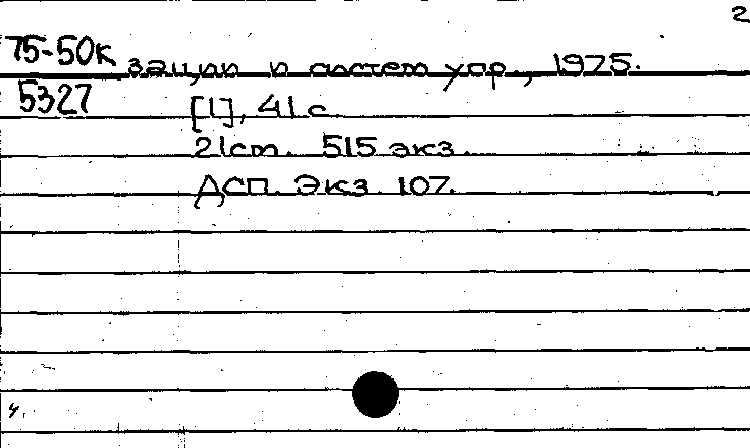 2
75-50к
зации и систем упр., 1975.
5327
[1], 41 с.
21см. 515 экз.
ДСП. Экз. 107.